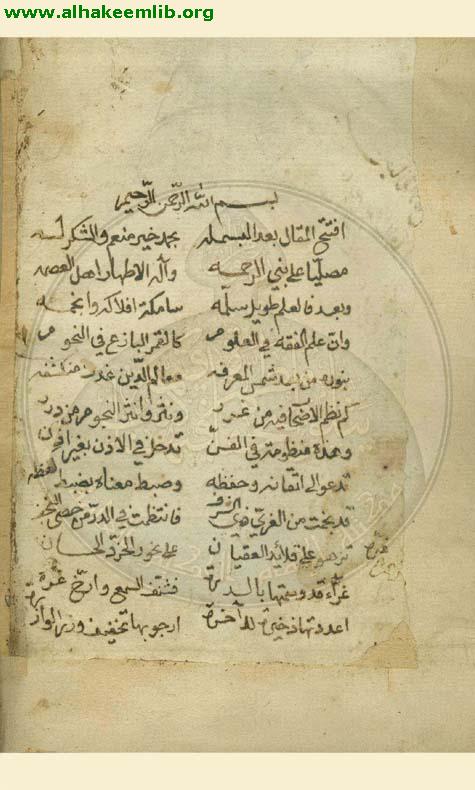 www.alhakeemlib.org
بسم الله الرحمن الرحيم
افتتح المقال بعد البسمله بحمد خير منعم والشكر له
مصليا على نبي الرحمه وآله الاطهار اهل العصمه
وبعد فالعلم طويل سلمه سامكة افلاكه وانجمه
وان علم الفقه في العلوم كالقمر البازغ في النجوم
بنوره من بعد شمس المعرفه معالم الدين غدت منكشفه
كم نظم الاصحاب فيه من غرر ونثروا نثر النجوم من درر
وهذه منظومة في الفن تدخل في الاذن بغير اذن
تدعو الى اتقانه وحفظه وضبط معناه بضبط لفظه
قد من الغري ذي الشرف فانتظمت في الدر من حصى النجف
تزهو على قلائد العقيان على نحور الخرد الحسان
غراء قد وسمتها بالدرة فشنف السمع وارخ غرة
اعددتها ذخيرة للآخرة ارجو بها تخفيف وزر الوازرة